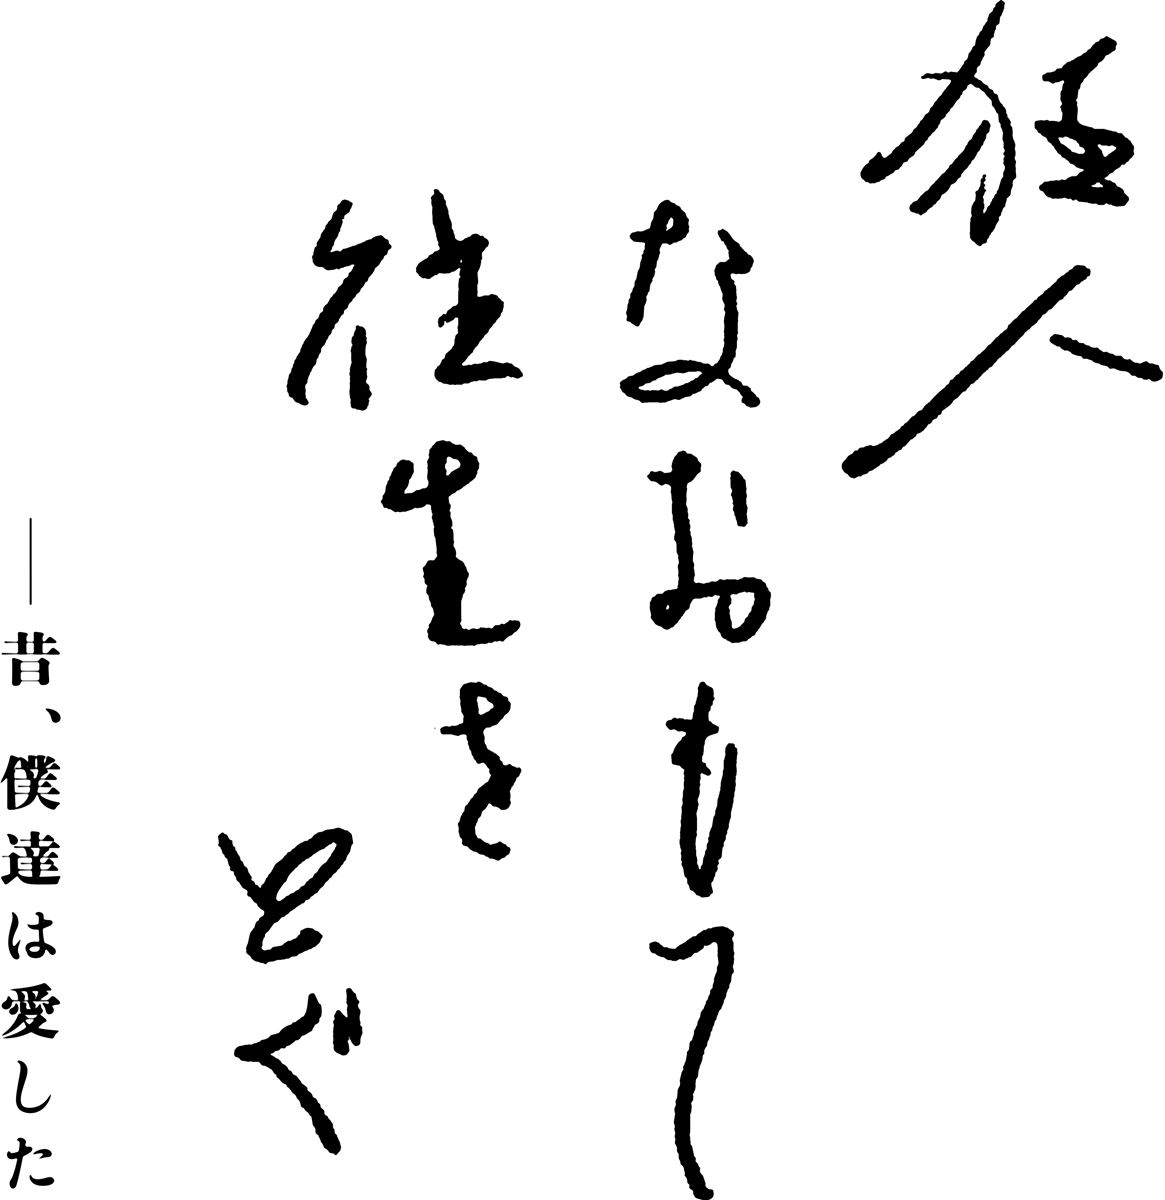 狂人
なおもて
往生を
とぐ
――昔、僕達は愛した